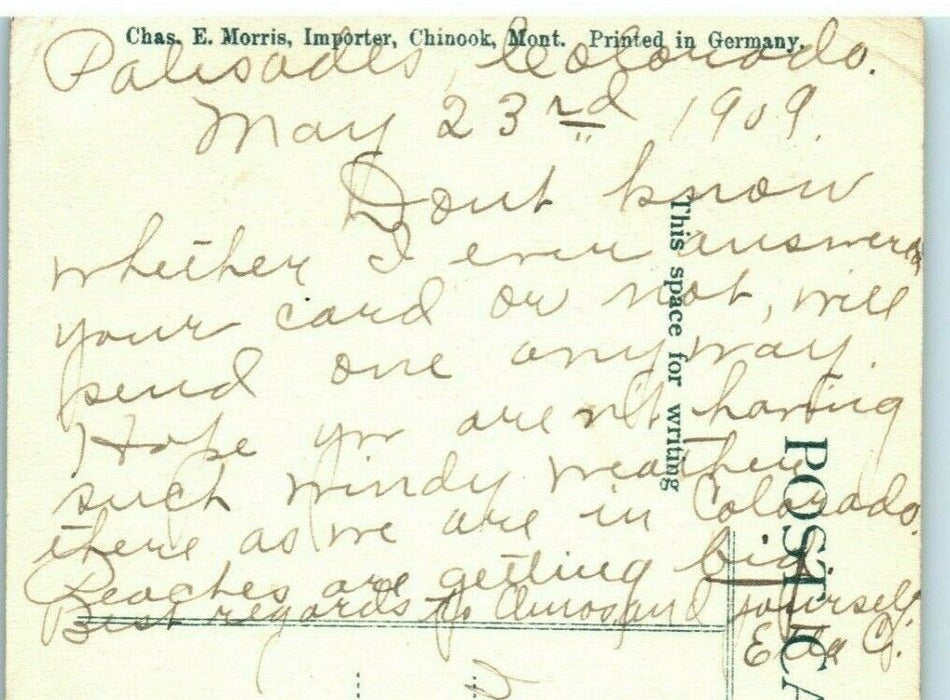 Chas. E. Morris, Importer, Chinook, Mont. Printed in Germany.
Palisades, Colorado.
May 23rd 1909.
Dont know
whether I ever answered
your card or not, will
send one anyway.
Hope you aren't having
such windy weather
there as we are in Colorado.
Peaches are getting big
Best regards to Amos and yourself.
G.
This space for writing
POST CA